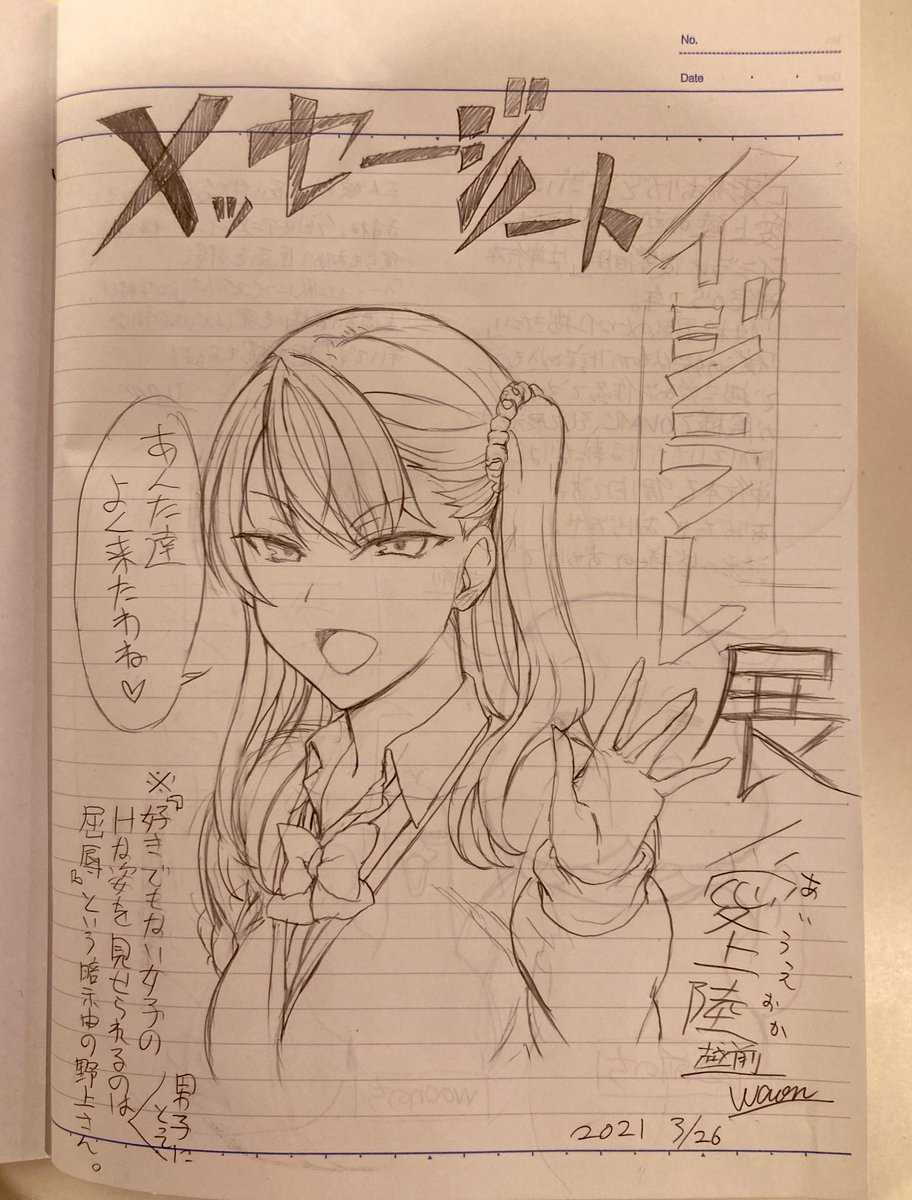 No.
Date
メッセージノート
イジラレ
展
あいうえおか
愛上陸
越前
waon
2021 3/26
あんた達
よく来たわね♡
※『好きでもない女子の
Hな姿を見せられるのは
男子に
とって
屈辱』という暗示中の野上さん。